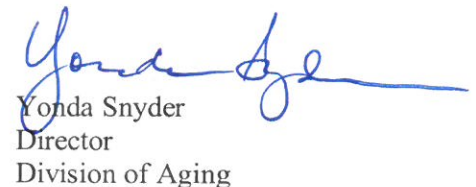 Yonda Snyder
Yonda Snyder
Director
Division of Aging